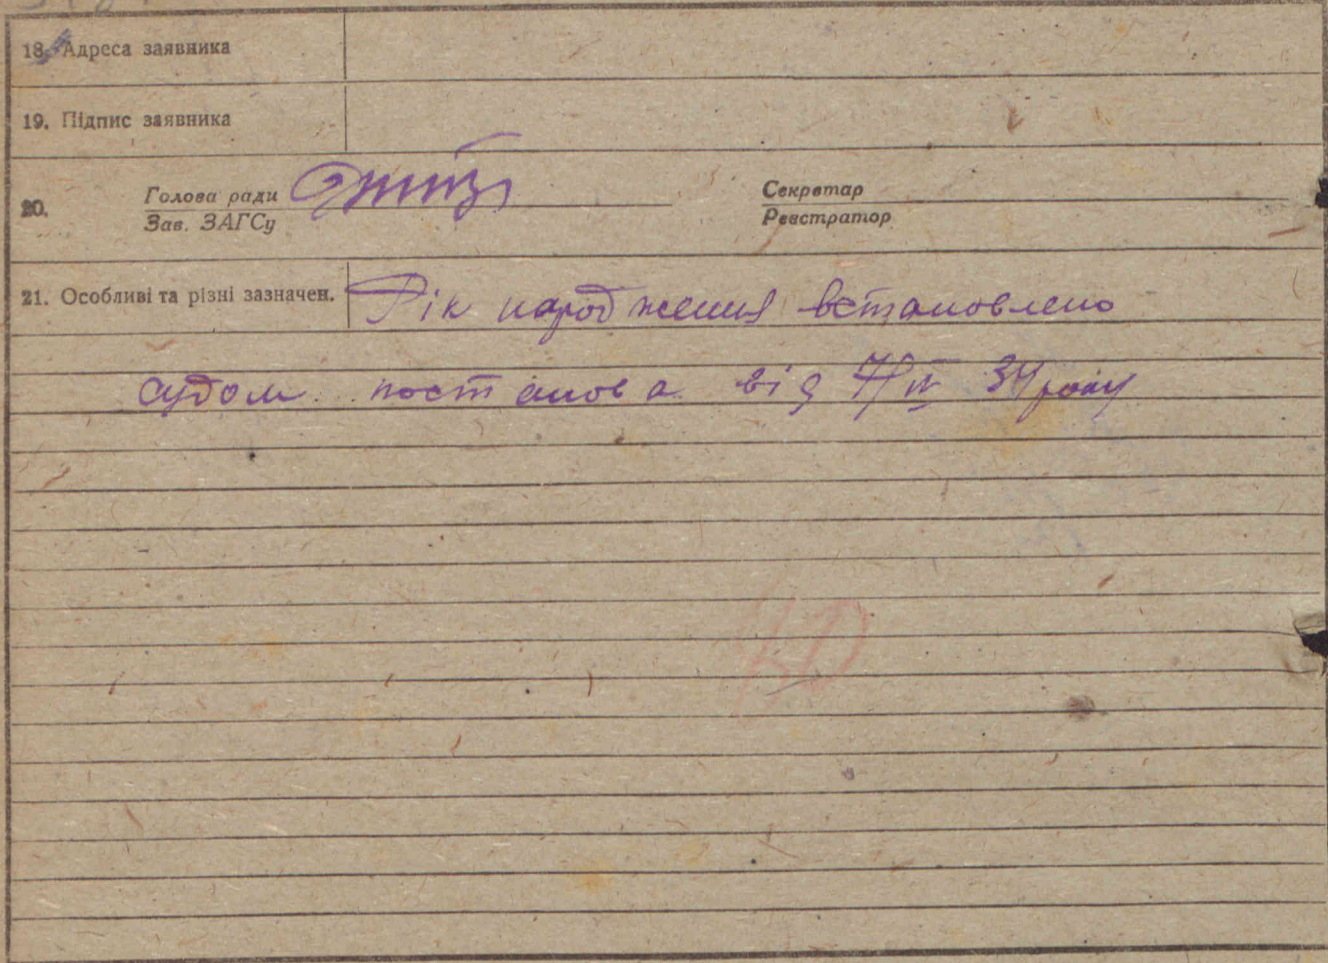 18. Адреса заявника
19. Підпис заявника
20. Голова ради Секретар
Зав. ЗАГСу Реєстратор
21. Особливі та різні зазначен. Рік народження встановлено
судом постанова від 7/IV 34 року